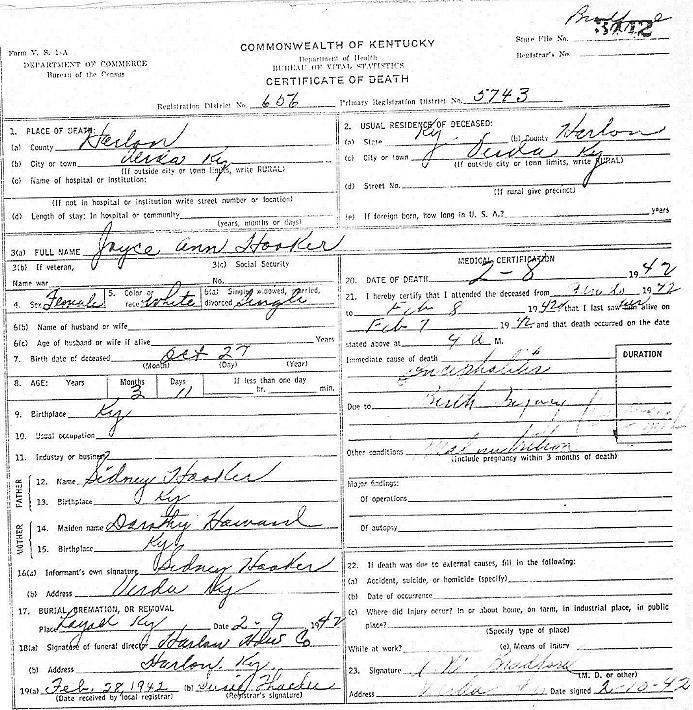 Form V. S. 1-A
DEPARTMENT OF COMMERCE
Bureau of the Census
COMMONWEALTH OF KENTUCKY
Department of Health
BUREAU OF VITAL STATISTICS
CERTIFICATE OF DEATH
State File No.
Registrar's No.
Registration District No. 656 Primary Registration District No. 5743
1. PLACE OF DEATH:
(a) County Harlan
(b) City or town Verda Ky
(If outside city or town limits, write RURAL)
(c) Name of hospital or institution:
(If not in hospital or institution write street number or location)
(d) Length of stay: In hospital or community
(years, months or days)
2. USUAL RESIDENCE OF DECEASED:
(a) State Ky (b) County Harlan
(c) City or town Verda Ky
(If outside city or town limits, write RURAL)
(d) Street No.
(If rural give precinct)
(e) If foreign born, how long in U. S. A.? years
3(a) FULL NAME Joyce Ann Hooker
3(b) If veteran, 3(c) Social Security
Name war No.
4. Sex Female 5. Color or race White 6(a) Single, widowed, married, divorced Single
6(b) Name of husband or wife
6(c) Age of husband or wife if alive Years
7. Birth date of deceased Oct 27
(Month) (Day) (Year)
8. AGE: Years Months Days If less than one day
3 11 hr. min.
9. Birthplace Ky
10. Usual occupation
11. Industry or business
FATHER
12. Name Sidney Hooker
13. Birthplace Ky
MOTHER
14. Maiden name Dorothy Howard
15. Birthplace Ky
16(a) Informant's own signature Sidney Hooker
(b) Address Verda Ky
17. BURIAL, CREMATION, OR REMOVAL
Place Loyall Ky Date 2-9 1942
18(a) Signature of funeral director Harlan Hdw Co
(b) Address Harlan, Ky.
19(a) Feb. 28, 1942 (b)
(Date received by local registrar) (Registrar's signature)
MEDICAL CERTIFICATION
20. DATE OF DEATH 2-8 1942
21. I hereby certify that I attended the deceased from 1942
to Feb 8 1942 that I last saw her alive on
Feb 7 1942 and that death occurred on the date
stated above at 4 a M.
Immediate cause of death DURATION
Encephalitis
Due to Birth Injury
Other conditions Malnutrition
(Include pregnancy within 3 months of death)
Major findings:
Of operations
Of autopsy
22. If death was due to external causes, fill in the following:
(a) Accident, suicide, or homicide (specify)
(b) Date of occurrence
(c) Where did injury occur? In or about home, on farm, in industrial place, in public
place?
(Specify type of place)
While at work? (e) Means of injury
23. Signature Bradford
(M. D. or other)
Address Verda Ky Date signed 2-10-42